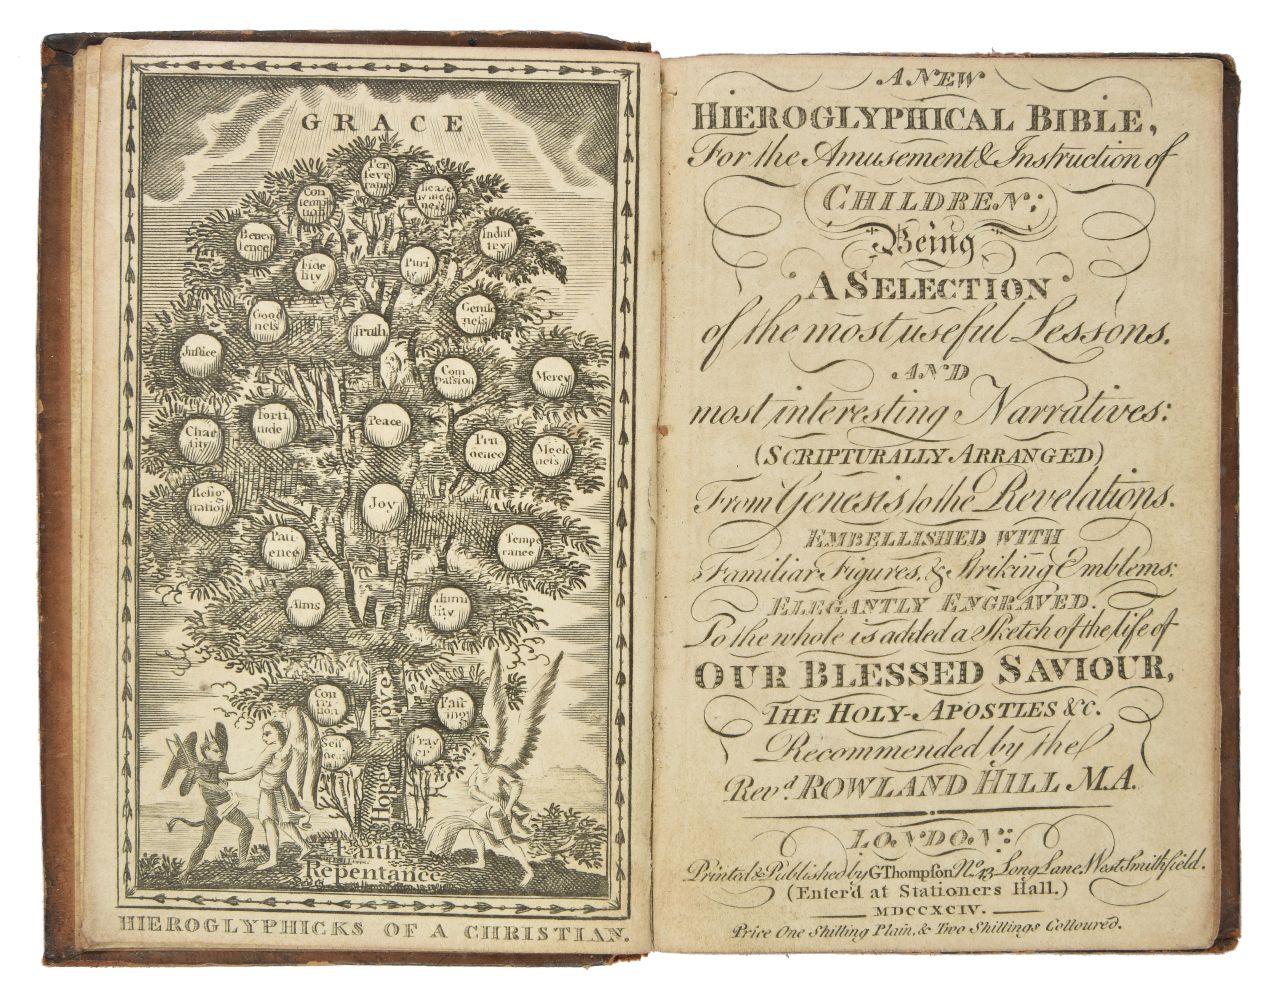 GRACE
Per
ſeve
rance
Con
temp
lation
Benev
olence
Induſ
try
Fide
lity
Puri
ty
Good
neſs
Gentle
neſs
Truth
Juſtice
Com
paſsion
Mercy
Forti
tude
Peace
Chaſ
tity
Pru
dence
Meek
neſs
Reſig
nation
Joy
Pati
ence
Tempe
rance
Alms
Humi
lity
Con
tri
tion
Faſt
ing
Self
Pray
er
Love
Hope
Faith
Repentance
HIEROGLYPHICKS OF A CHRISTIAN.
A NEW
HIEROGLYPHICAL BIBLE,
For the Amusement & Instruction of
CHILDREN:
Being
A SELECTION
of the most useful Lessons.
AND
most interesting Narratives:
(SCRIPTURALLY ARRANGED)
From Genesis to the Revelations.
EMBELLISHED WITH
Familiar Figures, & Striking Emblems:
ELEGANTLY ENGRAVED.
To the whole is added a Sketch of the life of
OUR BLESSED SAVIOUR,
THE HOLY-APOSTLES &c.
Recommended by the
Revd. ROWLAND HILL M.A.
LONDON:
Printed & Published by G Thompſon No. 43 Long Lane, West Smithfield.
(Enter'd at Stationers Hall.)
MDCCXCIV.
Price One Shilling Plain, & Two Shillings Colloured.